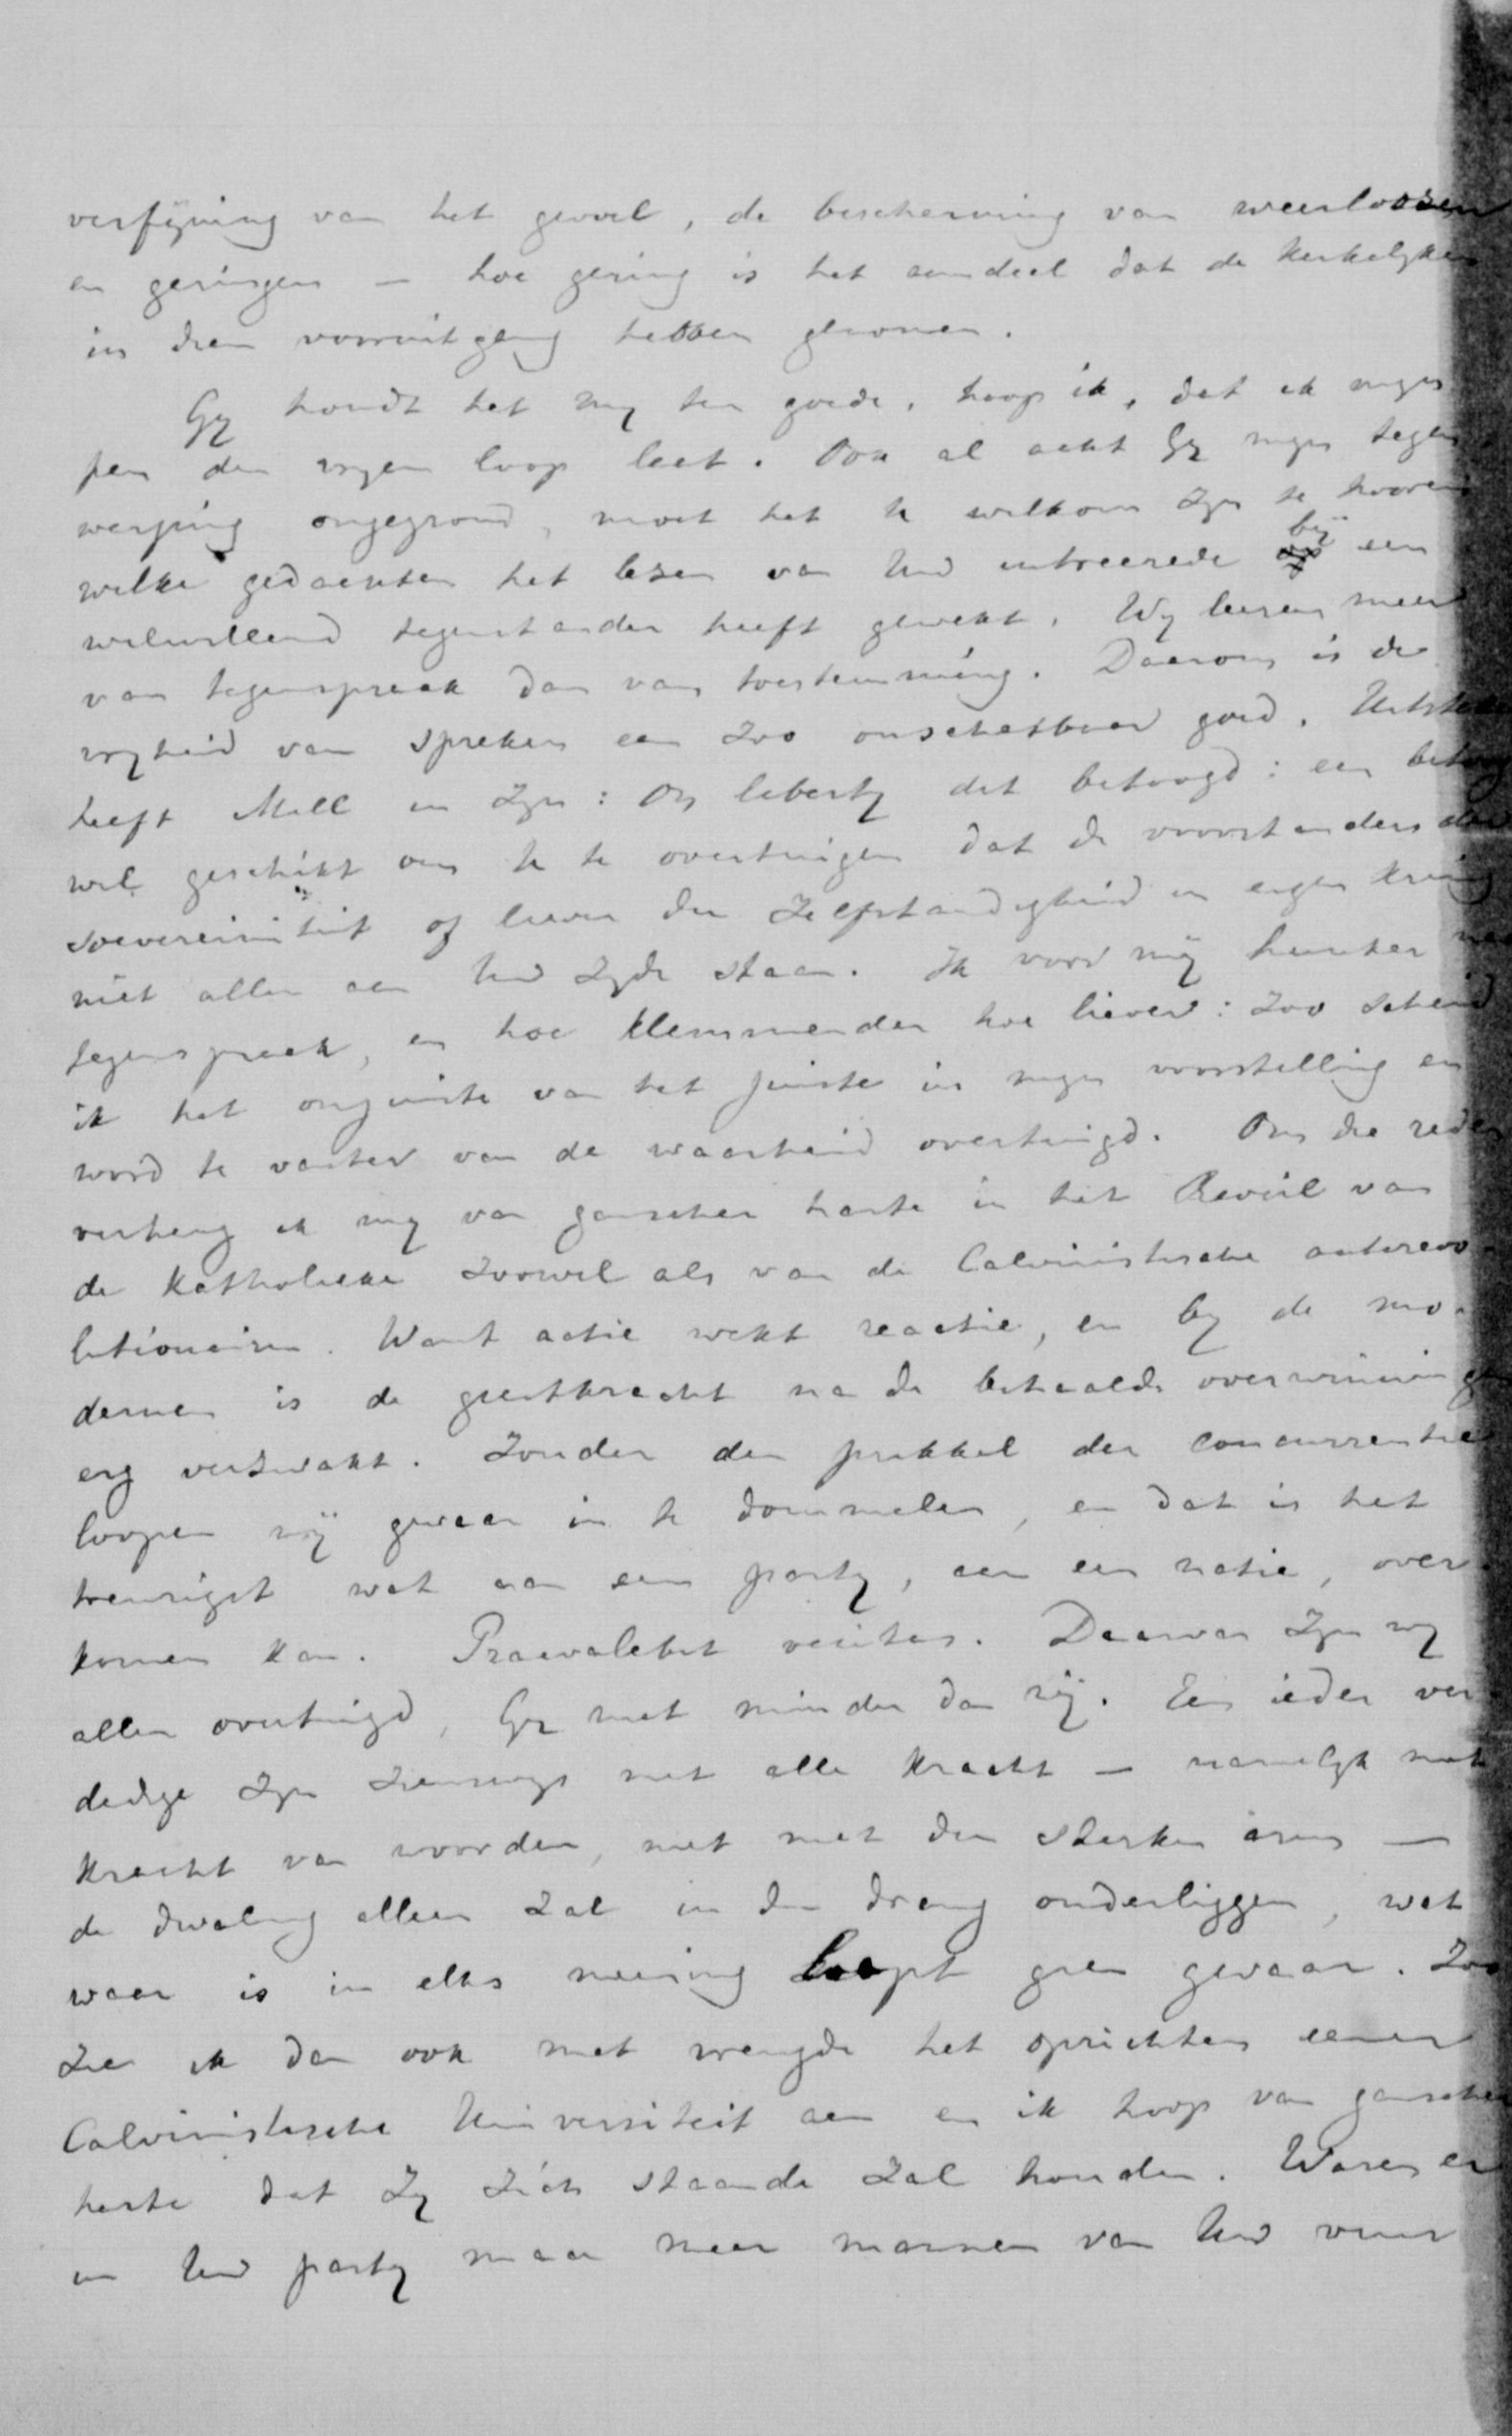 verfijning van het gevoel, de bescherming van weerloozen
en geringen — hoe gering is het aandeel dat de kerkelyken
in dien vooruitgang hebben genomen.
Gy houdt het my ten goede, hoop ik, dat ik myn
pen den vryen loop laat. Ook al acht Gy myn tegen-
werping ongegrond, moet het U welkom zyn te hooren
welke gedachten het lezen van Uw intreerede bij een
welwillend tegenstander heeft gewekt. Wy leeren meer
van tegenspraak dan van toestemming. Daarom is de
vryheid van spreken een zoo onschatbaar goed. Uitstekend
heeft Mill in zyn: On liberty dit betoogd: een betoog
wel geschikt om U te overtuigen dat de voorstanders der
soevereiniteit of liever der zelfstandigheid in eigen kring
niet allen aan Uw zyde staan. Ik voor mij hunker naar
tegenspraak, en hoe klemmender hoe liever: zoo scheid
ik het onjuiste van het juiste in myn voorstelling en
word te vaster van de waarheid overtuigd. Om die reden
verheug ik my van ganscher harte in het Reveil van
de Katholieke zoowel als van de Calvinistische antirevo-
lutionairen. Want actie wekt reactie, en by de mo-
dernen is de geestkracht na de behaalde overwinningen
erg verzwakt. Zonder den prikkel der concurrentie
loopen wij gevaar in te dommelen, en dat is het
treurigst wat aan een party, aan een natie, over-
komen kan. Praevalebit veritas. Daarvan zyn wy
allen overtuigd, Gy niet minder dan wij. Een ieder ver-
dedige zyn zienswys met alle kracht — namelyk met
kracht van woorden, niet met den sterken arm —
de dwaling alleen zal in den drang onderliggen, wat
waar is in elks meening loopt geen gevaar. Zoo
zie ik dan ook met vreugde het oprichten eener
Calvinistische Universiteit aan en ik hoop van ganscher
harte dat zy zich staande zal houden. Waren er
in Uw party maar meer mannen van Uw vuur